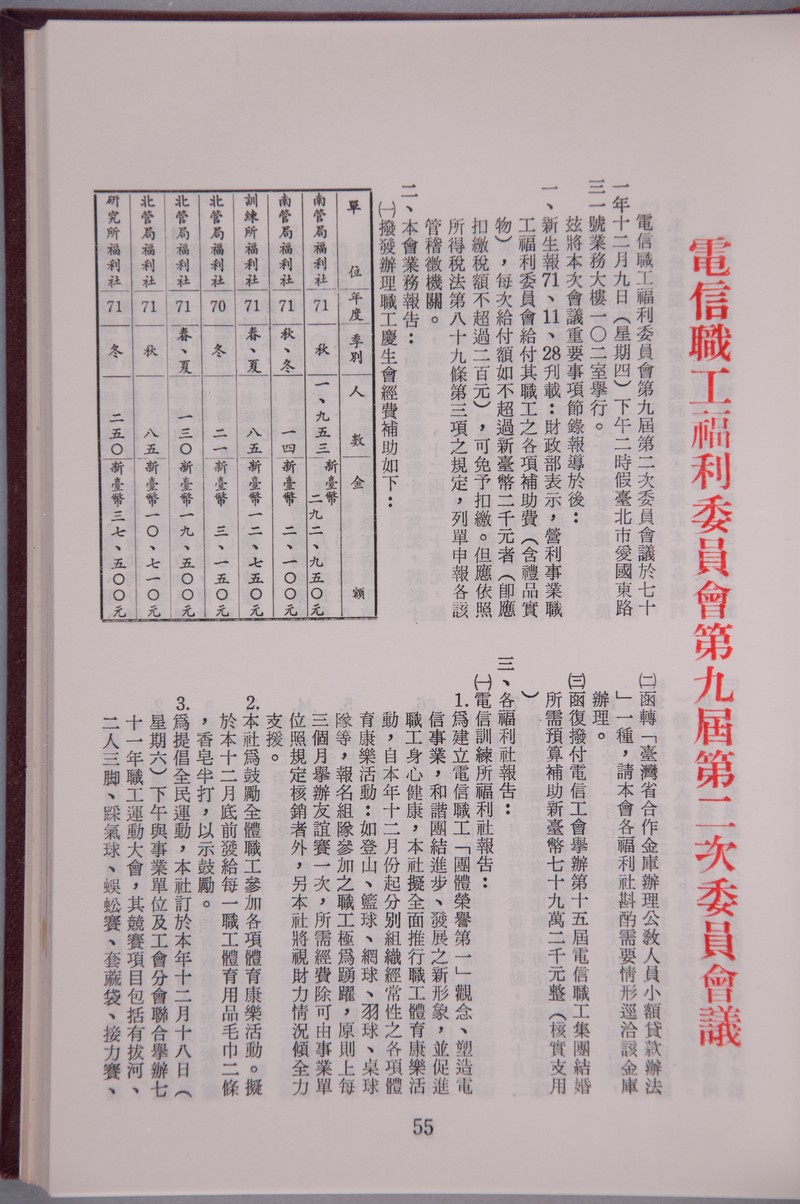 電信職工福利委員會第九屆第二次委員會議
電信職工福利委員會第九屆第二次委員會議於七十
一年十二月九日（星期四）下午二時假臺北市愛國東路
三一號業務大樓一〇二室舉行。
玆將本次會議重要事項節錄報導於後：
一、新生報71、11、28刋載：財政部表示，營利事業職
工福利委員會給付其職工之各項補助費（含禮品實
物），每次給付額如不超過新臺幣二千元者（卽應
扣繳稅額不超過二百元），可免予扣繳。但應依照
所得稅法第八十九條第三項之規定，列單申報各該
管稽徵機關。
二、本會業務報告：
㈠撥發辦理職工慶生會經費補助如下：
單位 年度 季別 人數 金額
南管局福利社 71 秋 一、九五三 新臺幣二九二、九五〇元
南管局福利社 71 秋、冬 一四 新臺幣二、一〇〇元
訓練所福利社 71 春、夏 八五 新臺幣一二、七五〇元
北管局福利社 70 冬 二一 新臺幣三、一五〇元
北管局福利社 71 春、夏 一三〇 新臺幣一九、五〇〇元
北管局福利社 71 秋 八五 新臺幣一〇、七一〇元
研究所福利社 71 冬 二五〇 新臺幣三七、五〇〇元
㈡函轉「臺灣省合作金庫辦理公敎人員小額貸款辦法
」一種，請本會各福利社斟酌需要情形逕洽該金庫
辦理。
㈢函復撥付電信工會舉辦第十五屆電信職工集團結婚
所需預算補助新臺幣七十九萬二千元整（核實支用
）
三、各福利社報告：
㈠電信訓練所福利社報告：
1.爲建立電信職工「團體榮譽第一」觀念、塑造電
信事業，和諧團結進步、發展之新形象，並促進
職工身心健康，本社擬全面推行職工體育康樂活
動，自本年十二月份起分別組織經常性之各項體
育康樂活動：如登山、籃球、網球、羽球、桌球
隊等，報名組隊參加之職工極爲踴躍，原則上每
三個月舉辦友誼賽一次，所需經費除可由事業單
位照規定核銷者外，另本社將視財力情況傾全力
支援。
2.本社爲鼓勵全體職工參加各項體育康樂活動。擬
於本十二月底前發給每一職工體育用品毛巾二條
，香皂半打，以示鼓勵。
3.爲提倡全民運動，本社訂於本年十二月十八日（
星期六）下午與事業單位及工會分會聯合舉辦七
十一年職工運動大會，其競賽項目包括有拔河、
二人三脚、踩氣球、蜈蚣賽、套蔴袋、接力賽、
55